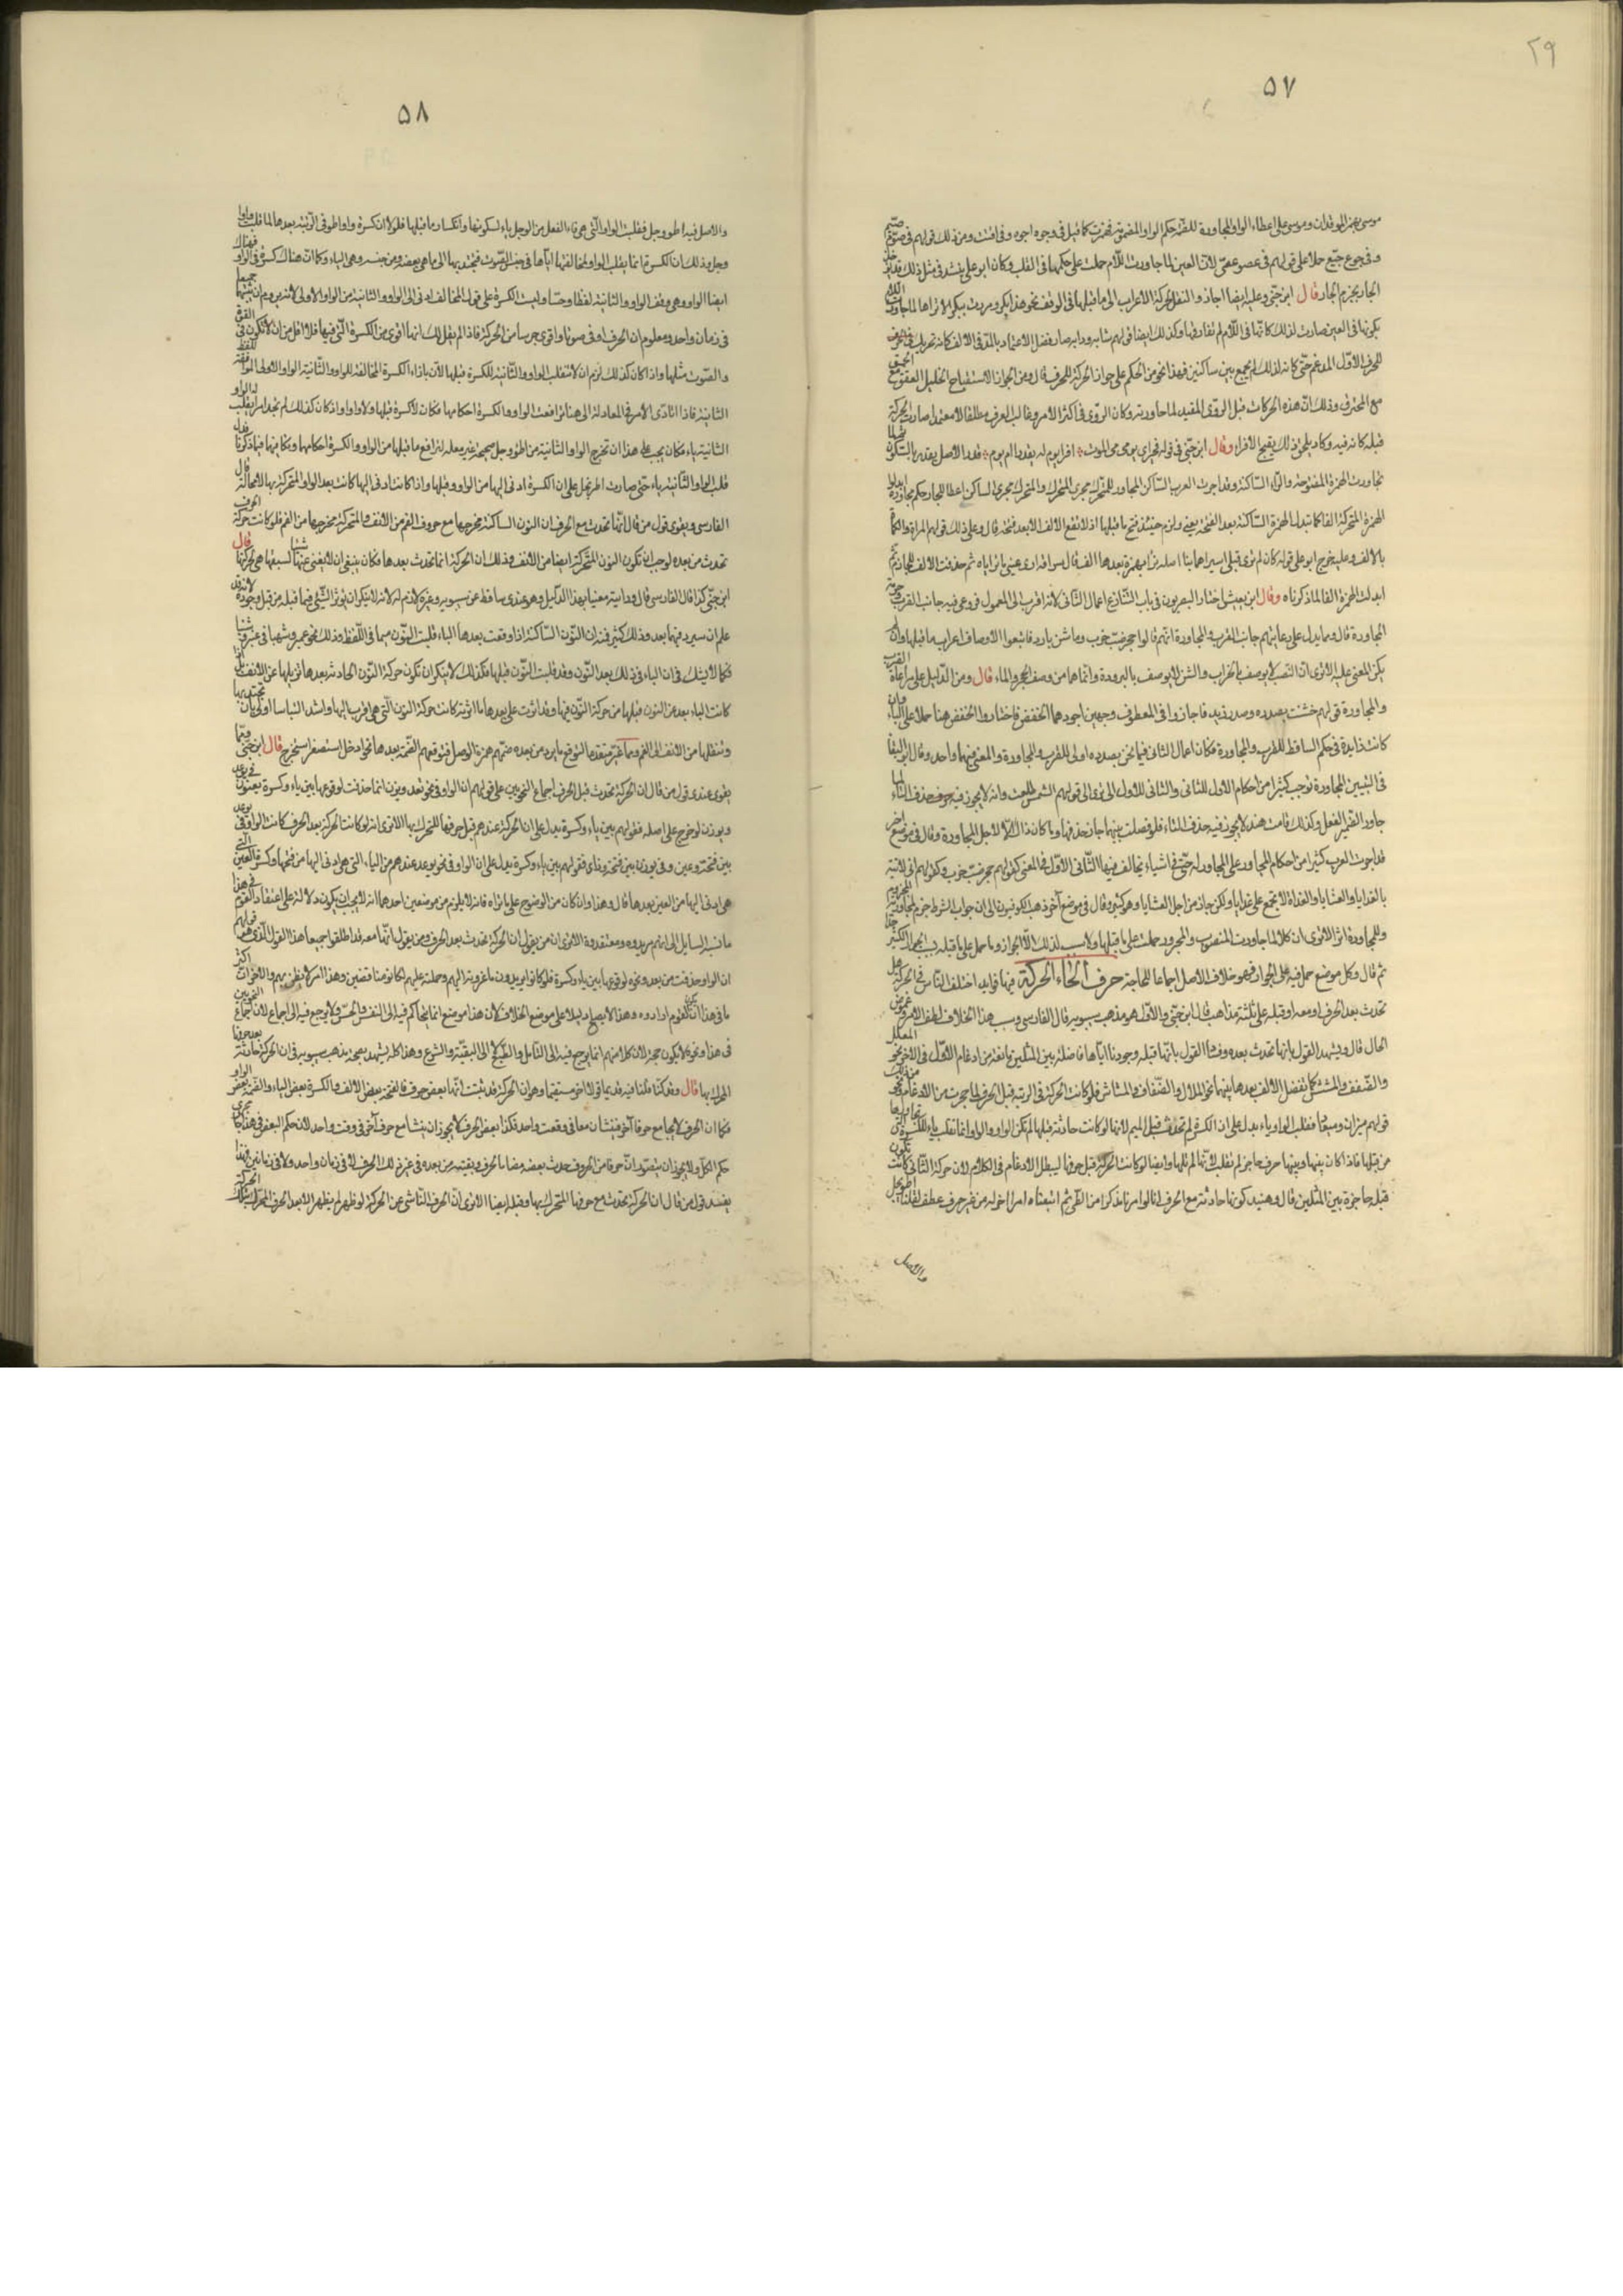 ٢٩
٥٧
موسى بهمز الموقدان وموسى على اعطاء الواو المجاورة للضمة حكم الواو المضمومة فهمزت كما قيل في وجوه اجوه وفي اقتت ومن ذلك قولهم في صوّم صيّم
وفي جوع جيّع حملا على قولهم في عصو عصيّ لان العين لما جاورت اللام حملت على حكمها في القلب وكان ابو علي ينشد في مثل ذلك قد يؤخذ
الجار بجرم الجار قال ابن جنّي وعليه ايضا اجازوا النقل لحركة الاعراب الى ما قبلها في الوقف نحو هذا بكر ومررت ببكر الا تراها لما جاورت اللام
بكونها في العين صارت لذلك كانها في اللام لم تفارقها وكذلك ايضا قولهم شابة ودابة صار فضل الاعتماد بالمد في الالف كانه تحريك
للحرف الاول المدغم حتى كانه لذلك لم يجمع بين ساكنين فهذا نحو من الحكم على جواز الحركة للحرف قال ومن الجواز استقباح الخليل العقق
مع المخترق وذلك ان هذه الحركات قبل الروى المقيد لما جاورته وكان الروى في اكثر الامر وغالب العرف مطلقا لا مقيدا صارت الحركة
قبله كانه فيه وكاد يلحق ذلك بقبيح الاقواء وقال ابن جنّي في قوله في اي يومي من الموت افر ايوم لم يقدر ام يوم قدر الاصل يقدر بالسكون ثم لما
تجاورت الهمزة المفتوحة والراء الساكنة وقد اجرت العرب الساكن المجاور للمتحرك مجرى المتحرك والمتحرك مجرى الساكن اعطاء للجار حكم مجاوره ابدلوا
الهمزة المتحركة الفا كما تبدل الهمزة الساكنة بعد الفتحة يعني ولزم حينئذ فتح ما قبلها اذ لا تقع الالف الا بعد فتحة قال وعلى ذلك قولهم المراة والكماة
بالالف وعليه خرج ابو علي قوله كان لم ترى قبلي اسيرا يمانيا اصله ترأى بهمزة بعدها الف كما قال سراقة ارى عيني ما لم ترأياه ثم حذفت الالف للجازم ثم
ابدلت الهمزة الفا لما ذكرناه وقال ابن يعيش اختار البصريون في باب التنازع اعمال الثاني لانه اقرب الى المعمول فروعي فيه جانب القرب وحرمة
المجاورة قال ومما يدل على رعايتهم جانب القرب والمجاورة انهم قالوا جحر ضب خرب وماء شن بارد فاتبعوا الاوصاف اعراب ما قبلها وان لم
يكن المعنى عليه الا ترى ان الضب لا يوصف بالخراب والشن لا يوصف بالبرودة وانما هما من وصف الجحر والماء قال ومن الدليل على مراعاة القرب
والمجاورة قولهم خشنت بصدره وصدر زيد فاجازوا في المعطوف وجهين اجودهما الخفض فاختاروا الخفض هنا حملا على الباء وان
كانت زايدة في حكم الساقط للقرب والمجاورة فكان اعمال الثاني فيما نحن بصدده اولى للقرب والمجاورة والمعنى فيهما واحد وقال ابو البقا
في التبيين المجاورة توجب كثيرا من احكام الاول للثاني والثاني للاول الا ترى الى قولهم الشمس طلعت وانه لا يجوز فيه حذف التاء لما
جاور الضمير الفعل وكذلك قامت هند لا يجوز فيه حذف التاء فلو فصلت بينهما جاز حذفها وما كان ذلك الا لاجل المجاورة وقال في موضع اخر
قد اجرت العرب كثيرا من احكام المجاور على المجاور له حتى في اشياء يخالف فيها الثاني الاول في المعنى كقولهم جحر ضب خرب وكقولهم اني لاتيه
بالغدايا والعشايا والغداة لا يجمع على غدايا ولكن جاز من اجل العشايا وهو كثير وقال في موضع آخر ذهب الكوفيون الى ان جواب الشرط جزم لمجاورته المجزوم
وللمجاورة اثر الا ترى ان كلا لما جاورت المنصوب والمجرور حملت على ما قبلها ولا سبب لذلك الا الجوار وما حمل على ما قبله بسبب الجوار كثير
ثم قال وكل موضع حمل فيه على الجوار فهو خلاف الاصل اجماعا للحاجة حرف الحاء الحركة فيها فوايد اختلف الناس في الحركة هل
تحدث بعد الحرف او معه او قبله على ثلثة مذاهب قال ابن جنّي والاول هو مذهب سيبويه قال الفارسي وسبب هذا الخلاف لطف الامر وغموض
الحال قال ويشهد القول بانها تحدث بعده وفسا القول بانها قبله وجودنا اياها فاصلة بين المثلين مانعة من ادغام الاول في الاخر نحو الملل
والضفف والمشش كما تفصل الالف بعدها بينهما نحو الملال والضفاف والمشاش فلو كانت الحركة في الرتبة قبل الحرف لما حجزت من الادغام ونحو من ذلك
قولهم ميزان وميقات فقلب الواو ياء يدل على ان الكسرة لم تحدث قبل الميم لانها لو كانت حادثة قبلها لم تكن الواو والواو انما تقلب ياء للكسرة التي تجاورها
من قبلها فاذا كان بينها وبينها حرف حاجز لم تقلب لانها لم تلها وايضا لو كانت الحركة قبل حرفها لبطل الادغام في الكلام لان حركة الثاني كانت تكون
قبله حاجزة بين المثلين قال وهنيد كونها حادثة مع الحرف انا لو امرنا مذكرا من الطي ثم اتبعناه امرا اخر له من غير حرف عطف لقلنا اطو ايجل
والاصل
٥٨
والاصل فيه اطو وجل فقلبت الواو التي هي فاء الفعل من الوجل ياء لسكونها وانكسار ما قبلها فلولا ان كسرة واو اطو في الرتبة بعدها لما قلبت واو
وجل وذلك ان الكسرة انما يقلب الواو لمخالفتها اياها في جنس الصوت فتجتذبها الى ما هي بعضه ومن جنسه وهي الياء وكما ان هناك كسرة في الواو فهناك
ايضا الواو وهي وفق الواو والثانية لفظا وحسا وليست الكسرة على قول المخالف ادنى الى الواو والثانية من الواو الاولى لانه يروم ان يثبتهما جميعا
في زمان واحد ومعلوم ان الحرف اوفى صوتا واقوى جرسا من الحركة فاذا لم يقل لك انها اقوى من الكسرة التي فيها فلا اقل من ان تكون في القوة
والصوت مثلها واذا كان كذلك لزم ان لا تنقلب الواو والثانية للكسرة قبلها لان بازاء الكسرة المخالفة للواو والثانية الواو الاولى الموافقة للفظ
الثانية فاذا تادى الامر في المعادلة الى هنا ترافعت الواو والكسرة احكامهما فكان لا كسرة قبلها ولا واو واذا كان كذلك لم نجد امرا يقلب له الواو
الثانية ياء فكان يجب على هذا ان تخرج الواو الثانية من اطو وجل صحيحة غير معلة لترافع ما قبلها من الواو والكسرة احكامهما وتكافيهما فيما ذكرنا فدل
قلب الواو الثانية ياء حتى صارت اطو ايجل على ان الكسرة ادنى اليها من الواو وقبلها واذا كانت ادنى اليها كانت بعد الواو المتحركة بها لا محالة قال
الفارسي ويقوى قول من قال انها تحدث مع الحرف ان النون الساكنة مخرجها مع حروف الفم من الانف والمتحركة مخرجها من الفم فلو كانت حركة الحرف
تحدث من بعده لوجب ان تكون النون المتحركة ايضا من الانف وذلك ان الحركة انما تحدث بعدها فكان ينبغي ان لا يغني عنها شيئا لسبقها هي لحركتها قال
ابن جنّي كذا قال الفارسي قال ورايته معنيا بهذا الدليل وهو عندي ساقط عن سيبويه وغير لازم له لانه لا ينكر ان يؤثر الشيء فيما قبله من قبل وجوده لانه قد
علم ان سيرد فيما بعد وذلك كثير فمنه ان النون الساكنة اذا وقعت بعدها الباء قلبت النون ميما في اللفظ وذلك نحو عمبر وشمباء في عنبر وشنباء
فكما لا يشك في ان الباء في ذلك بعد النون وقد قلبت النون قبلها فكذلك لا ينكر ان تكون حركة النون الحادثة بعدها تزيلها عن الانف بل اذا
كانت الباء بعد من النون قبلها من حركة النون فيها وقد اثرت على بعدها ما اثرته كانت حركة النون التي هي اقرب اليها واشد التباسا اولى بان تجتذبها
وتنقلها من الانف الى الفم ومما غير متقدما لتوقع ما يرد من بعده ضمهم همزة الوصل لتوقعهم الضمة بعدها نحو ادخل استصغر استخرج قال ابن جنّي ومما
يقوى عندي قول من قال ان الحركة تحدث قبل الحرف اجماع النحويين على قولهم ان الواو في نحو تعد ويزن انما حذفت لوقوعها بين ياء وكسرة يعنون في يوعد
ويوزن لو خرج على اصله فقولهم بين ياء وكسرة يدل على ان الحركة عندهم قبل حرفها المتحرك بها الا ترى انه لو كانت الحركة بعد الحرف كانت الواو في يوعد
بين فتحة وعين وفي يوزن بين فتحة وزاي فقولهم بين ياء وكسرة يدل على ان الواو في نحو يوعد عندهم من الياء التي هي ادنى اليها من فتحتها وكسرة العين التي
هي ادنى اليها من العين بعدها قال وهذا وان كان من الوضوح على ما تراه فانه لا يلزم من موضعين احدهما انه لا يجب ان يكون دلالة على اعتقاد القوم في هذا
ما نسبه السايل الى انهم مريدوه ومعتقدوه الا ترى ان من يقول ان الحركة تحدث بعد الحرف ومن يقول انها معه قد اطلقوا جميعا هذا القول الذي هو قولهم
ان الواو حذفت من يعد ونحوه لوقوعها بين ياء وكسرة فلو كانوا يريدون ما عزوته اليهم وحملته عليهم لكانوا مناقضين وهذا امر لا يظن بهم والاخر ان اكثر
ما في هذا ان يكون القوم ارادوه وهذا لا يصلح دليلا على موضع الخلاف لان هذا موضع انما يتحاكم فيه الى النفس والحس ولا يرجع فيه الى اجماع لان اجماع النحويين
في هذا ونحوه لا يكون حجة لان كلا منهم انما يرجع فيه الى التامل والطبع لا الى التقية والشرع وهذا كله يشهد بصحة مذهب سيبويه في ان الحركة حادثة بعد حرفها
المحرك بها قال وقد كنا قلنا فيه قديما قولا اخر مستقيما وهو ان الحركة قد ثبت انها بعض حرف فالفتحة بعض الالف والكسرة بعض الياء والضمة بعض الواو
فكما ان الحرف لا يجامع حرفا آخر فينشآن معا في وقت واحد فكذا بعض الحرف لا يجوز ان ينشا مع حرف آخر في وقت واحد لان حكم البعض في هذا جار مجرى
حكم الكل ولا يجوز ان يتصور ان حرفا من الحروف حدث بعضه مضافا لحرف وبقيته من بعده في غير ذلك الحرف لا في زمان واحد ولا في زمانين فهذا
يفسد قول من قال ان الحركة تحدث مع حرفها المتحرك بها وقبله ايضا الا ترى ان الحرف الناشي عن الحركة لو ظهر لم يظهر الا بعد الحرف المحرك بتلك الحركة